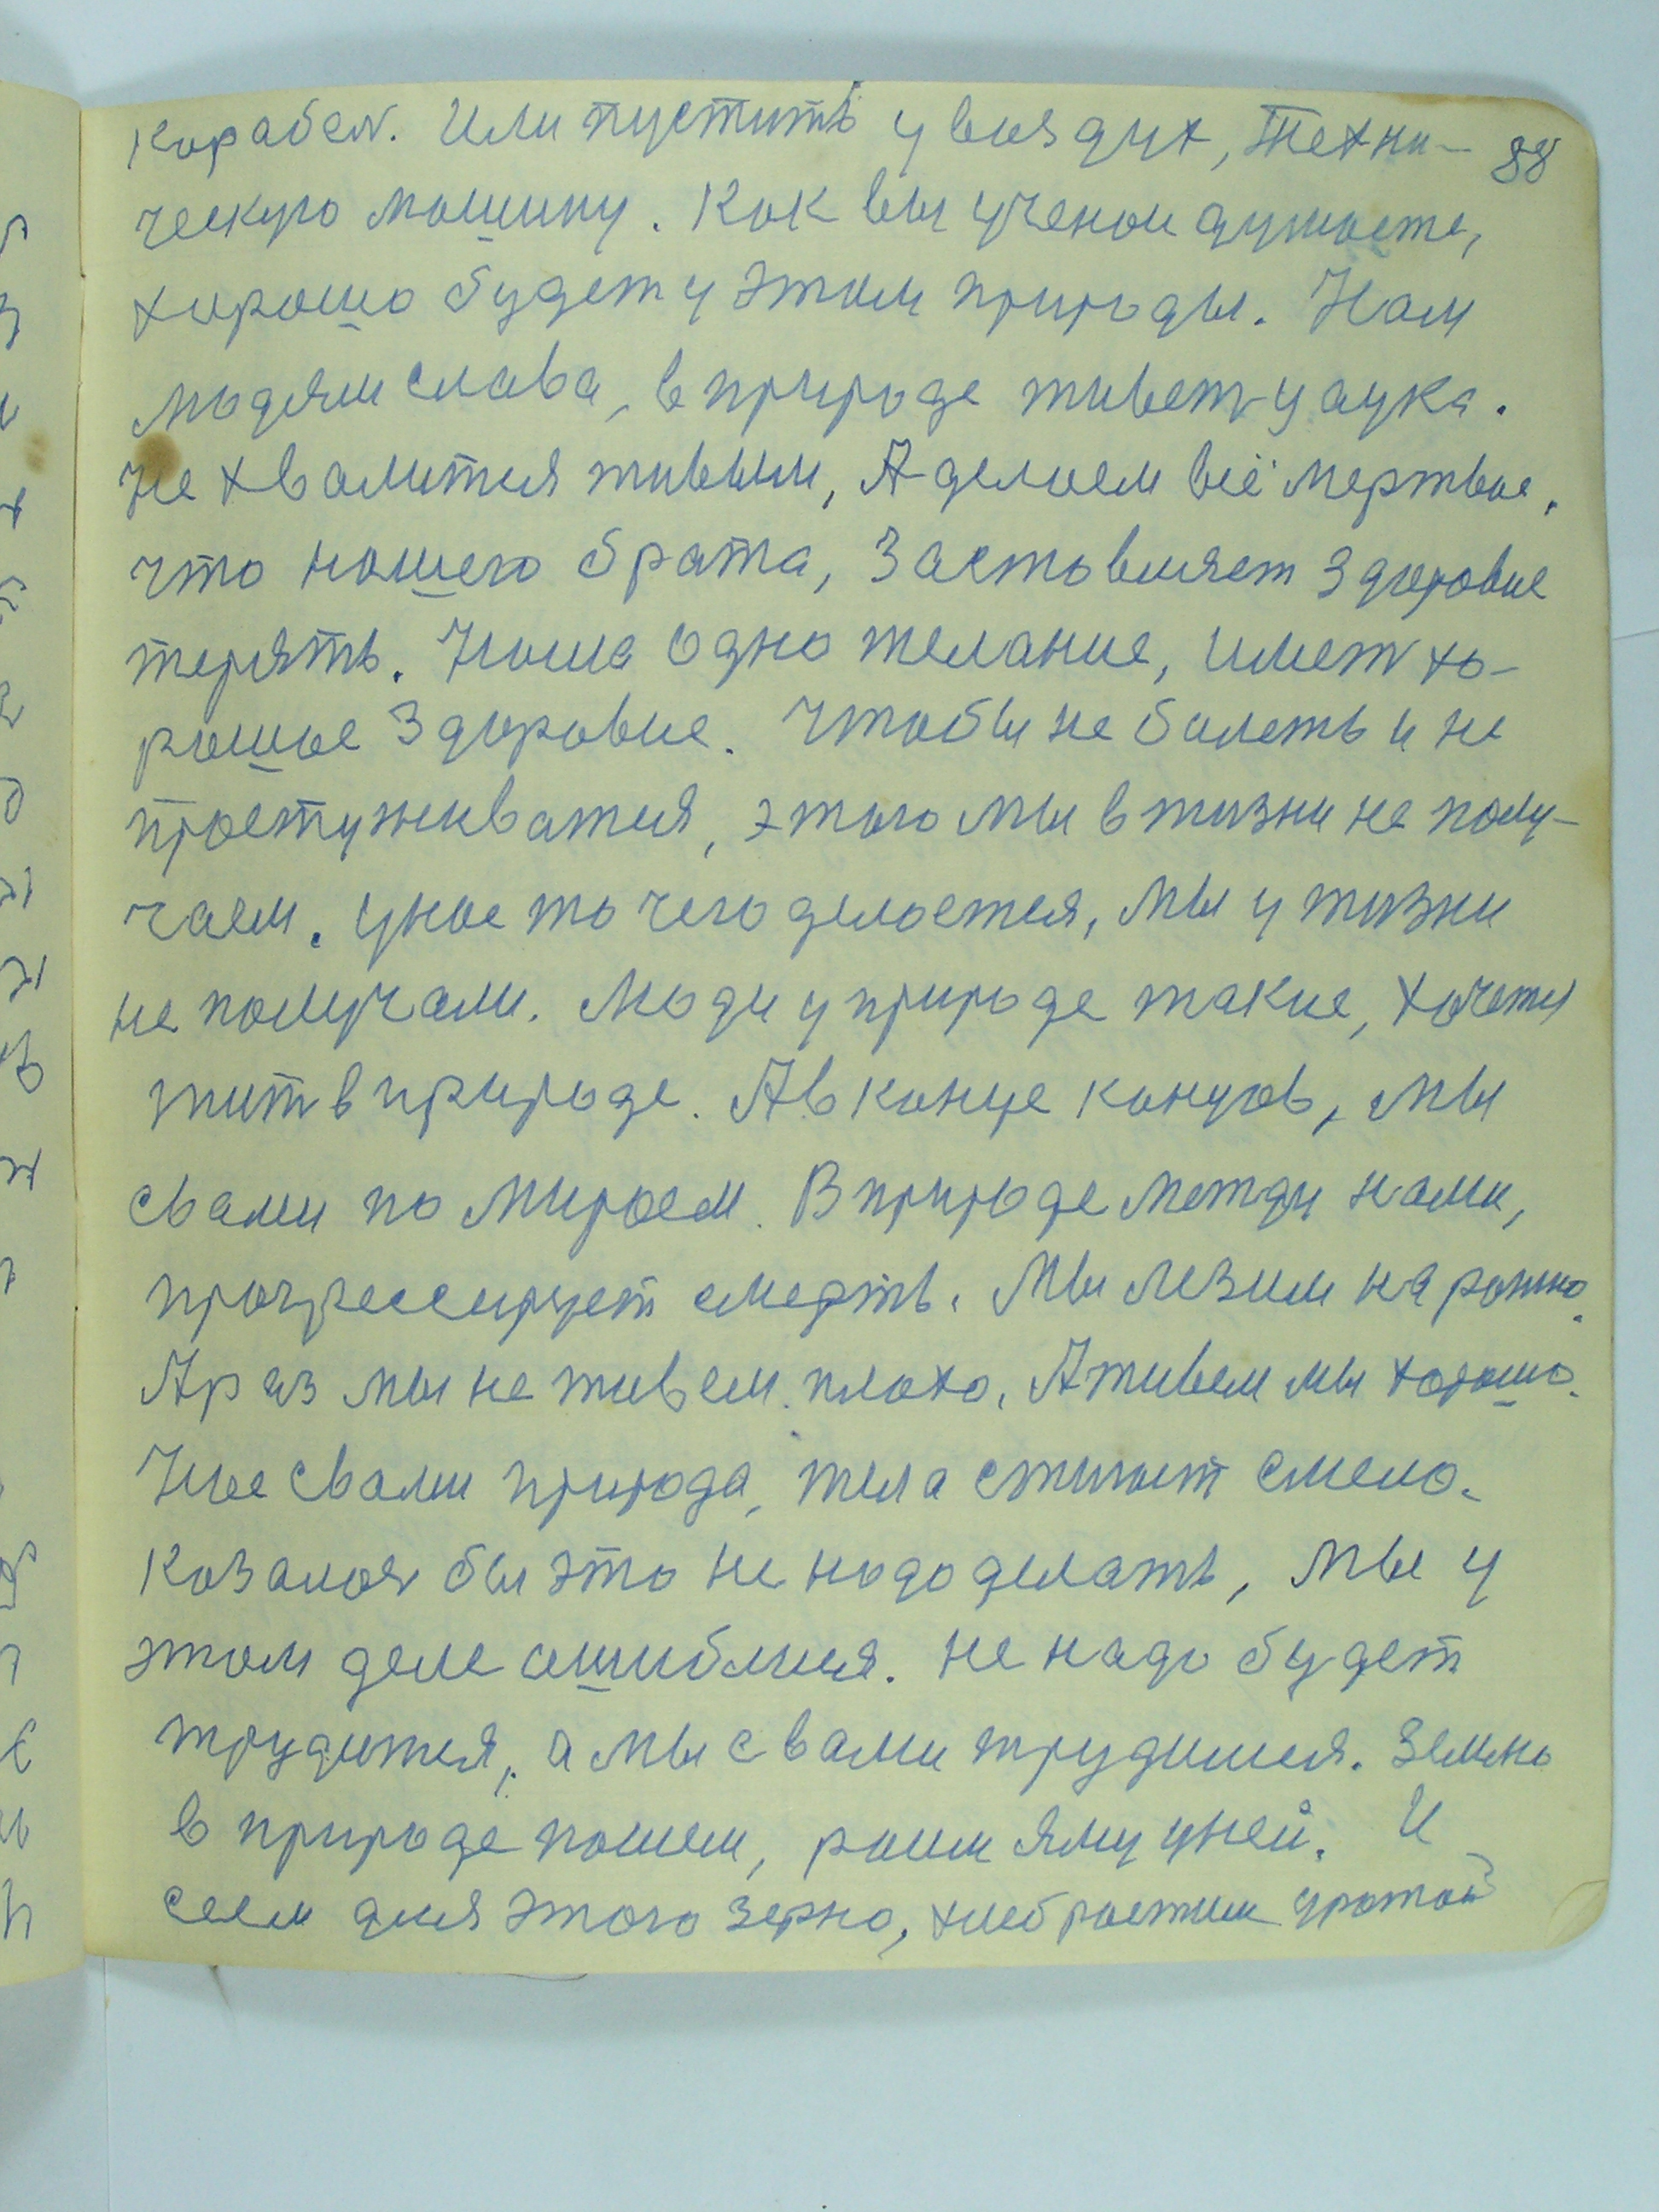 корабел. Или пустить у воздух, техни- 88
ческую машину. Как вы ученои думаете,
хорошо будет у этом природы. Нам
людям слава, в природе живет наука.
Не хвалится живым, А делаем всё мертвое.
что нашего брата, заставляет здоровие
терять. Наша одно желание, имет хо-
рошое здоровие. Чтобы не болеть и не
простужеватся, этого мы в жизни не полу-
чаем. у нас то чего делается, мы у жизни
не получали. Люди у природе такие, хочется
жит в природе. А в конце концов, мы
с вами по мираем. В природе между нами,
прогрессирует смерть. Мы лезим на рожно.
А раз мы не живем плохо. А живем мы хорошо.
Нас с вами природа, тела стигает смело.
Казалоя бы это не надо делать, мы у
этом деле ошиблися. не надо будет
трудится, а мы с вами трудимся. Землю
в природе пашем, роим яму у ней. И
сеем для этого зерно, хлеб растим уражай